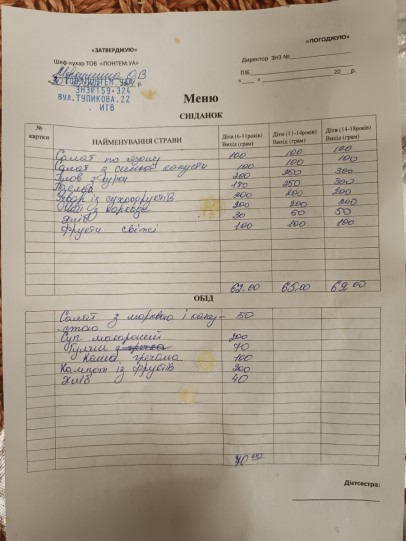 «ЗАТВЕРДЖУЮ»
«ПОГОДЖУЮ»
Шеф-кухар ТОВ «ПОНТЕМ.УА»
Директор ЗНЗ №
ПІБ
« » 20 р.
ЗНЗ№159-324
вул.ТУПИКОВА.22
ИТВ
Меню
СНІДАНОК
№ картки НАЙМЕНУВАННЯ СТРАВИ Діти (6-11років) Вихід (грам) Діти (11-14років) Вихід (грам) Діти (14-18років) Вихід (грам)
Салат по 100 100 100
Салат з капусти 100 100 100
Плов з курки 200 250 300
180 250 300
Узвар із сухофруктів 200 200 200
Чай з 200 200 200
Хліб 30 50 50
Фрукти свіжі 100 100 100
62.00 65.00 69.00
ОБІД
Салат з морквою і капу- 50
стою
Суп макаронний 200
Гуляш 70
Каша гречана 100
Компот із фруктів 200
Хліб 40
70.00
Дієтсестра: